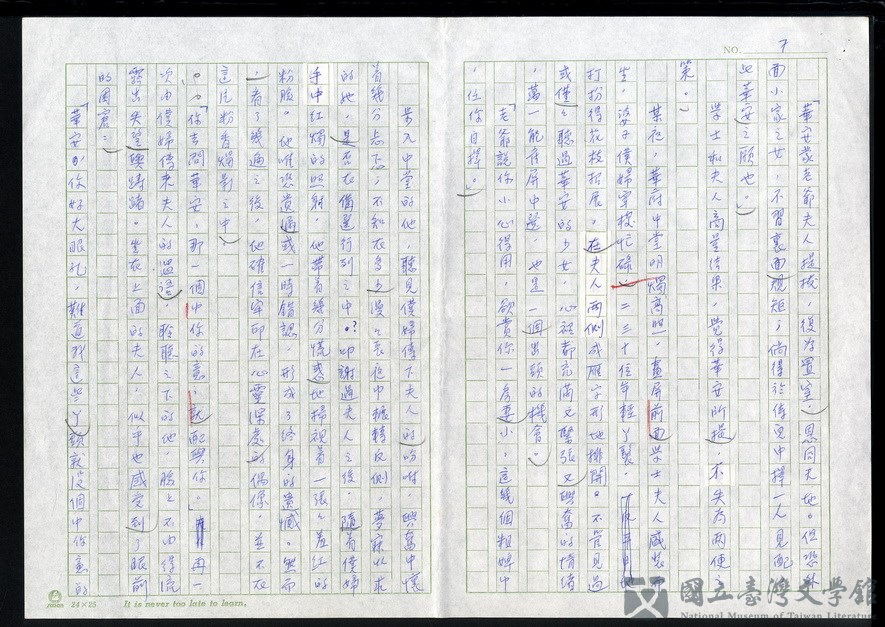 NO. 7
「華安蒙老爺夫人提拔，復為置室，恩同天地。但恐外
面小家之女，不習裏面規矩；倘得於侍兒中擇一人見配，
此華安之願也。」
學士和夫人商量結果，覺得華安所提，不失為兩便之
策。
某夜，華府中堂明燭高照，畫屏前面學士夫人盛裝而
坐，婆子僕婦穿梭忙碌，二三十位年輕丫鬟，
打扮得花枝招展，在夫人兩側成雁字形地排開。不管見過
或僅僅聽過華安的少女，心裡都充滿又緊張又興奮的情緒
，萬一能雀屏中選，也是一個出頭的機會。
「老爺說你小心得用，欲賞你一房妻小，這幾個粗婢中
，任你自擇。」
步入中堂的他，聽見僕婦傳下夫人的吩咐，興奮中懷
著幾分忐忑；不知在多少漫漫長夜中輾轉反側，夢寐以求
的她，是否在備選行列之中。？叩謝過夫人之後，隨著僕婦
手中紅燭的照射，他帶著幾分慌惑地掃視著一張張羞紅的
粉臉。他唯恐遺漏或一時錯認，形成了終身的遺憾。然而
，看了幾遍之後，他確信牢印在心靈深處的偶像，並不在
這片粉香燭影之中。
「你去問華安，那一個中你的意，就配與你。」再一
次由僕婦傳來夫人的溫語，聆聽之下的他，臉上不由得流
露出失望與躊躇。坐在上面的夫人，似乎也感受到了眼前
的困窘：
「華安，你好大眼孔，難道我這些丫頭就沒個中你意的
24×25
It is never too late to learn.
國立臺灣文學館
National Museum of Taiwan Literature